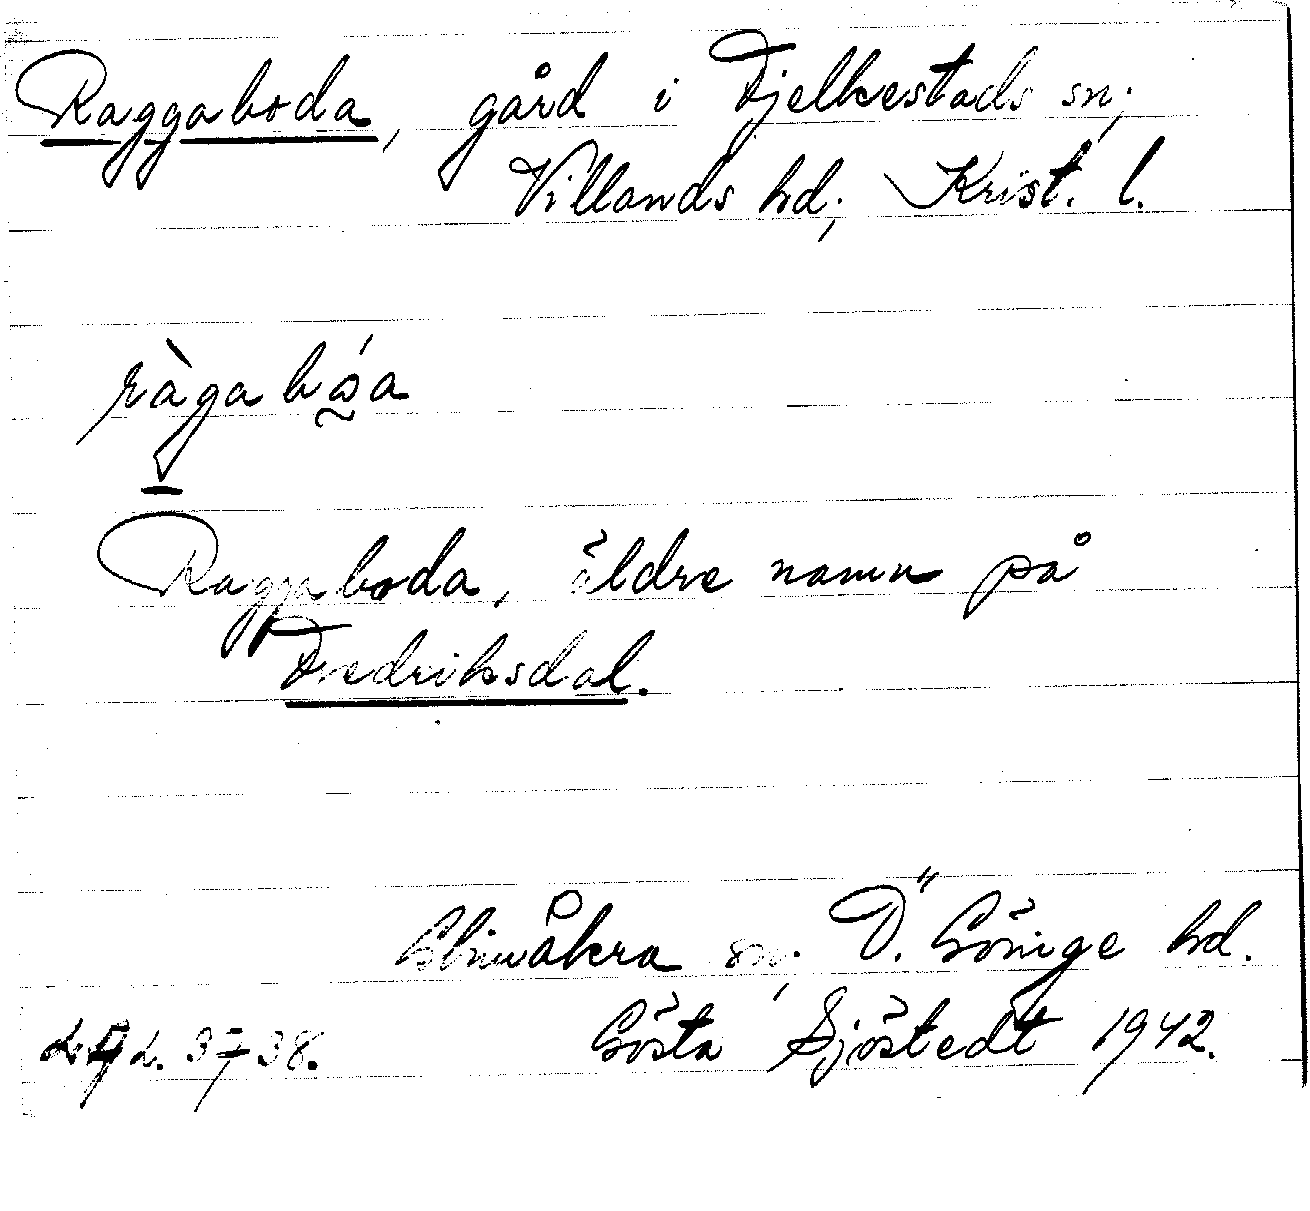 Raggaboda, gård i Fjelkestads sn;
Villands hd; Krist. l.
ràgabóa
Raggaboda, äldre namn på
Fredriksdal.
Glimåkra sn; Ö. Göinge hd.
3738. Gösta Sjöstedt 1942.